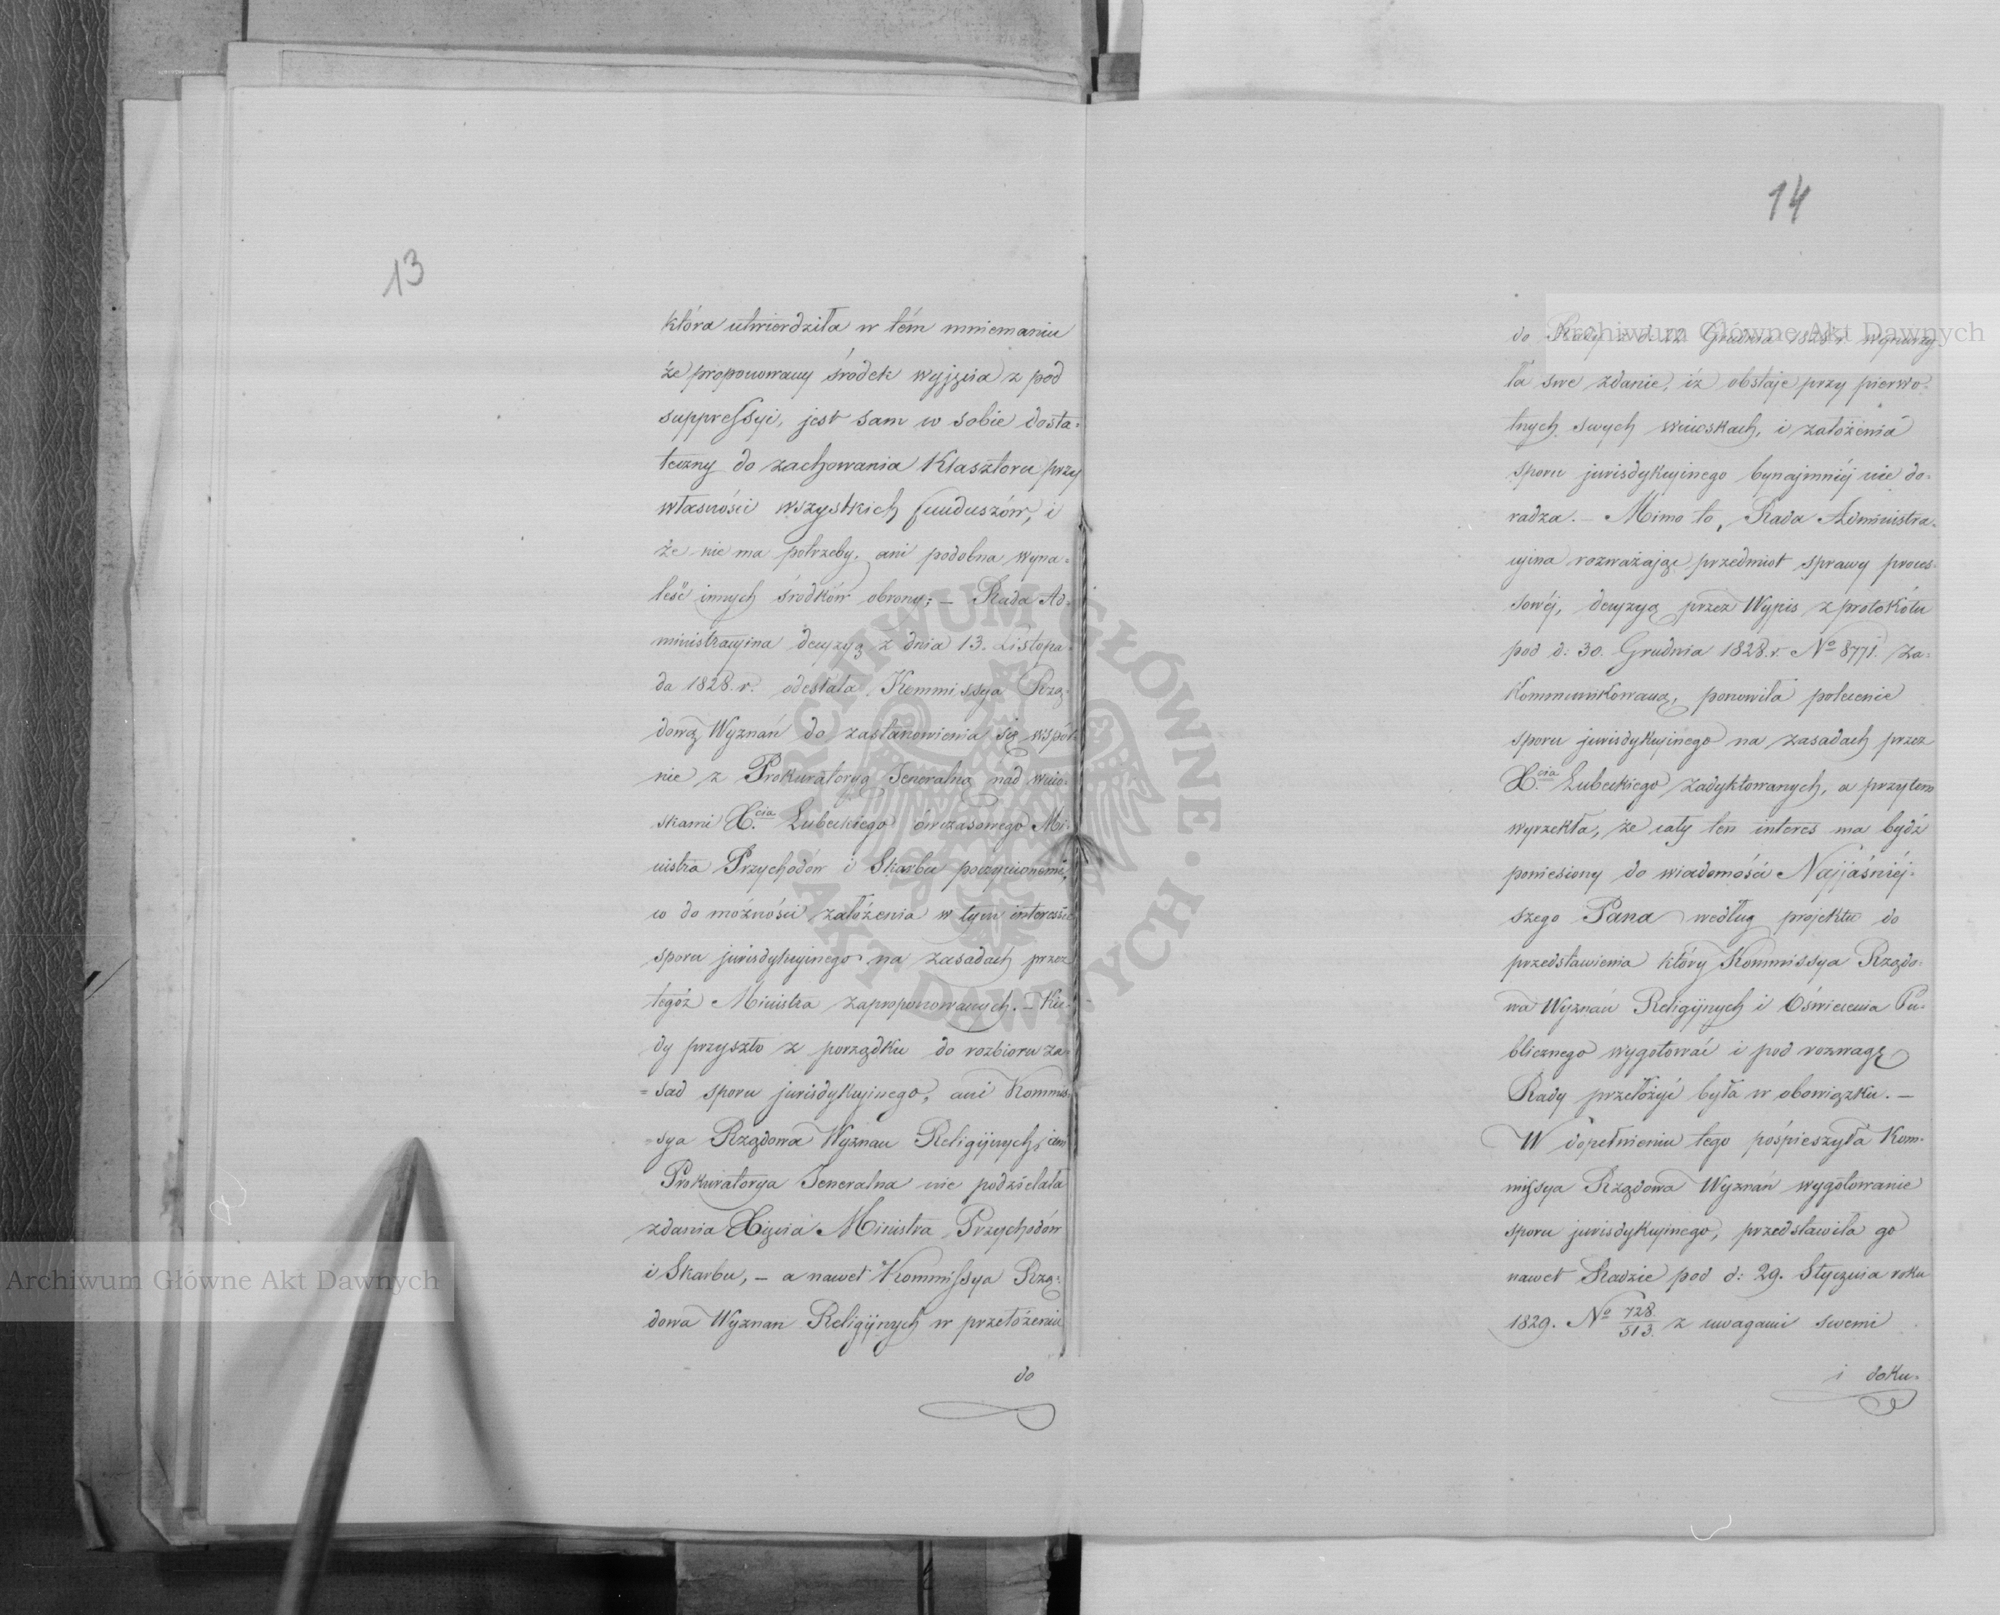 13
która utwierdziła w tém mniemaniu
że proponowany środek wyjścia z pod
suppressyi, jest sam w sobie dosta=
teczny do zachowania Klasztoru przy
własności wszystkich funduszów, i
że nie ma potrzeby, ani podobna wyna=
leść innych środków obrony; — Rada Ad=
ministracyina decyzyą z dnia 13. Listopa=
da 1828. r. odesłała Kommissyą Rzą=
dową Wyznań do zastanowienia się wspól=
nie z Prokuratoryą Jeneralną nad wnio=
skami X.cia Lubeckiego ówczasowego Mi=
nistra Przychodów i Skarbu poczynionemi,
co do możności założenia w tym interessie
sporu jurisdykcyinego na zasadach przez
tegóż Ministra zaproponowanych. — Kie=
dy przyszło z porządku do rozbioru za=
=sad sporu jurisdykcyinego, ani Kommis=
=sya Rządowa Wyznań Religijnych, ani
Prokuratorya Jeneralna nie podzielała
zdania Xięcia Ministra Przychodów
i Skarbu, — a nawet Kommissya Rzą=
dowa Wyznań Religijnych w przełożeniu
do
14
do Rady z d. 22 Grudnia 1828 r. wynurzy=
ła swe zdanie, iż obstaje przy pierwo=
tnych swych wnioskach, i założenia
sporu jurisdykcyinego bynajmniéj nie do=
radza. — Mimo to, Rada Administra=
cyina rozważając przedmiot sprawy proces=
sowéj, decyzyą przez Wypis z protokółu
pod d: 30. Grudnia 1828. r. No 8771. za=
kommunikowaną, ponowiła polecenie
sporu jurisdykcyinego na zasadach przez
X.cia Lubeckiego zadyktowanych, a przytem
wyrzekła, że cały ten interes ma bydź
poniesiony do wiadomości Najjaśniéj=
szego Pana według projektu do
przedstawienia który Kommissya Rządo=
wa Wyznań Religijnych i Oświecenia Pu=
blicznego wygotować i pod rozwagę
Rady przełożyć była w obowiązku. —
W dopełnieniu tego pośpieszyła Kom=
missya Rządowa Wyznań wygotowanie
sporu jurisdykcyinego, przedstawiła go
nawet Radzie pod d: 29. Stycznia roku
1829. No 728/513. z uwagami swemi
i doku=
Archiwum Główne Akt Dawnych
Archiwum Główne Akt Dawnych
ARCHIWUM GŁÓWNE · AKT DAWNYCH ·